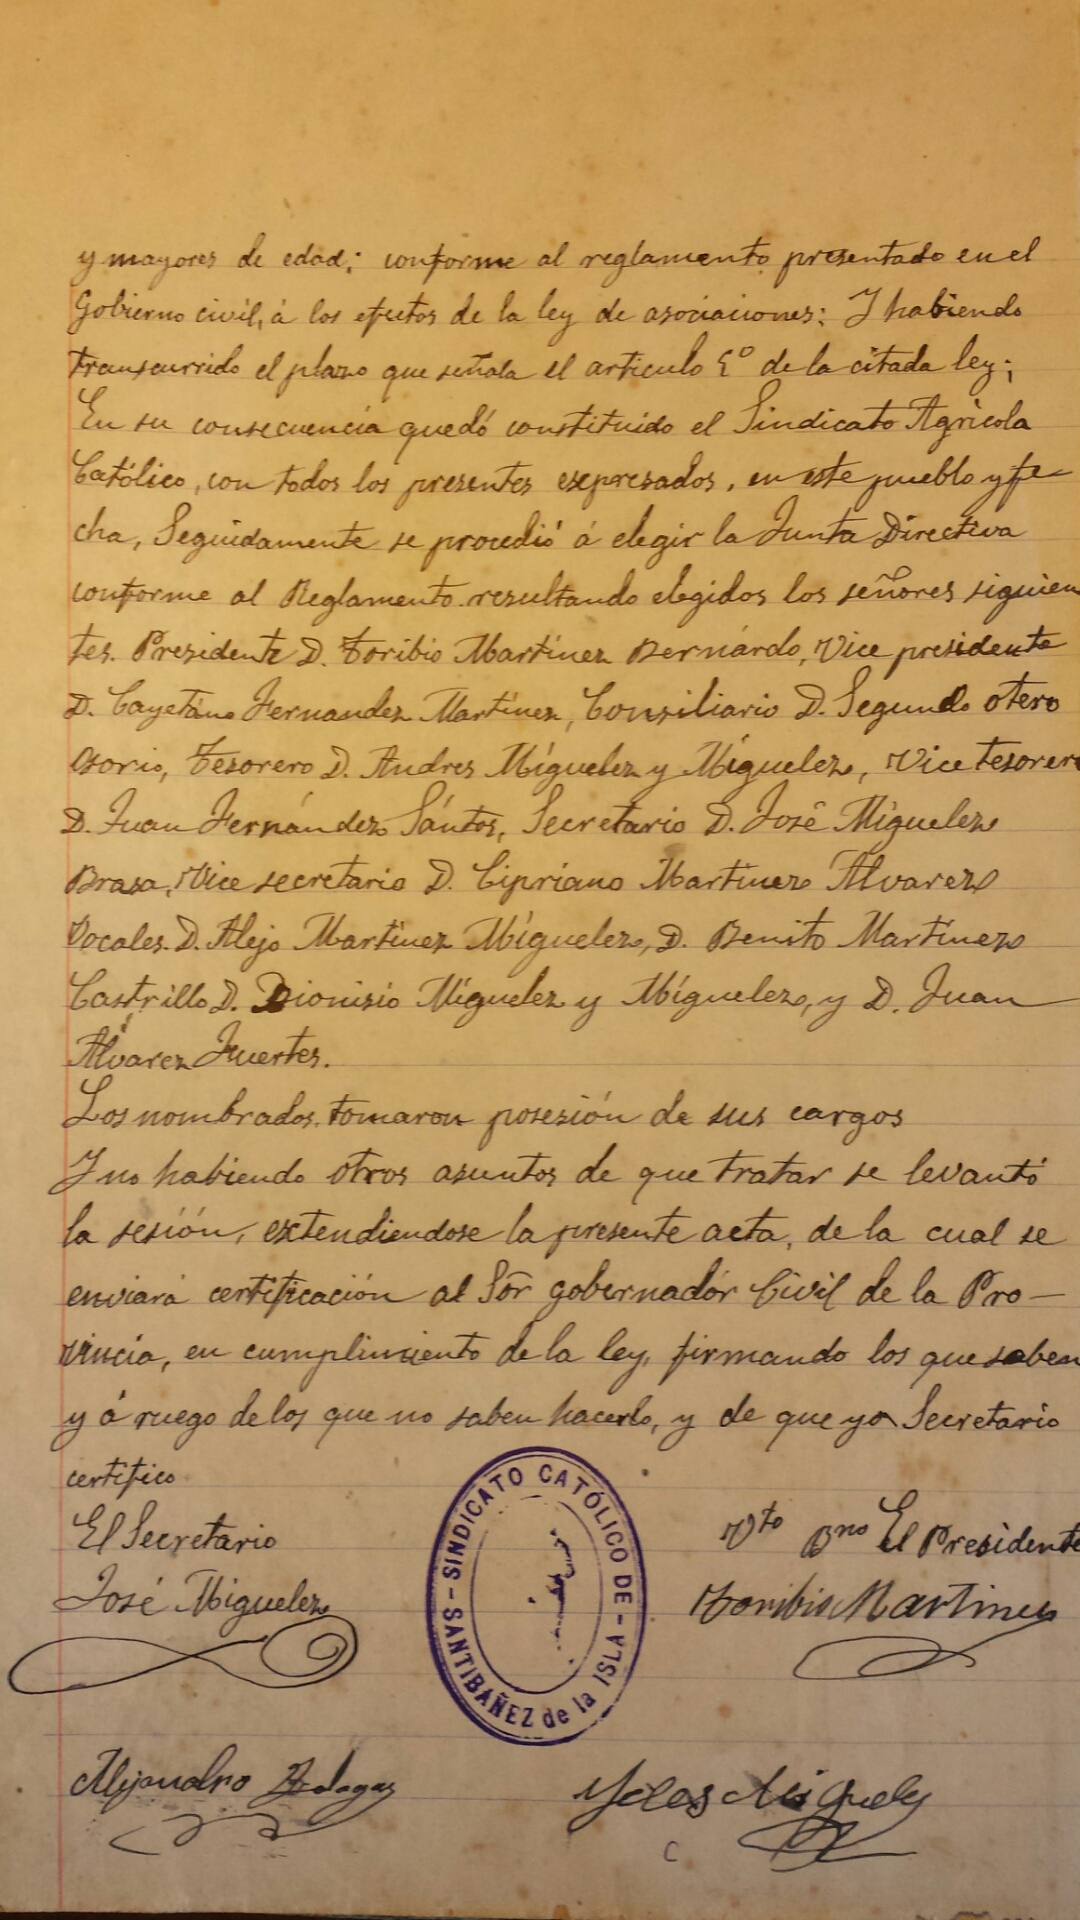 y mayores de edad; conforme al reglamento presentado en el
Gobierno civil, á los efectos de la ley de asociaciones; Y habiendo
transcurrido el plazo que señala el articulo 5º de la citada ley;
En su consecuencia quedó constituido el Sindicato Agrícola
Católico, con todos los presentes esepresados, en este pueblo y fe
cha, Seguidamente se procedió á elegir la Junta Directiva
conforme al Reglamento resultando elegidos los señores siguien
tes. Presidente D. Toribio Martínez Bernárdo, Vice presidente
D. Cayetáno Fernandez Martínez, Consiliario D. Segundo otero
Osorio, Tesorero D. Andres Míguelez y Míguelez, Vice tesorero
D. Juan Fernández Sántos, Secretario D. José Míguelez
Brasa, Vice secretario D. Cipríano Martinez Alvarez
Vocales. D. Alejo Martínez Míguelez, D. Benito Martínez
Castrillo D. Dionisio Míguelez y Míguelez, y D. Juan
Álvarez Fuertes.
Los nombrados tomaron posesión de sus cargos
Y no habiendo otros asuntos de que tratar se levantó
la sesión, extendiendose la presente acta, de la cual se
enviará certificación al Sōr gobernadór Civil de la Pro-
vincia, en cumplimiento de la ley, firmando los que saben
y á ruego de los que no saben hacerlo, y de que yo Secretario
certifico
El Secretario
Vto Bno El Presidente
José Miguelez
Toribio Martinez
SINDICATO CATÓLICO DE - SANTIBAÑEZ de la ISLA -
Alejandro
Miguelez